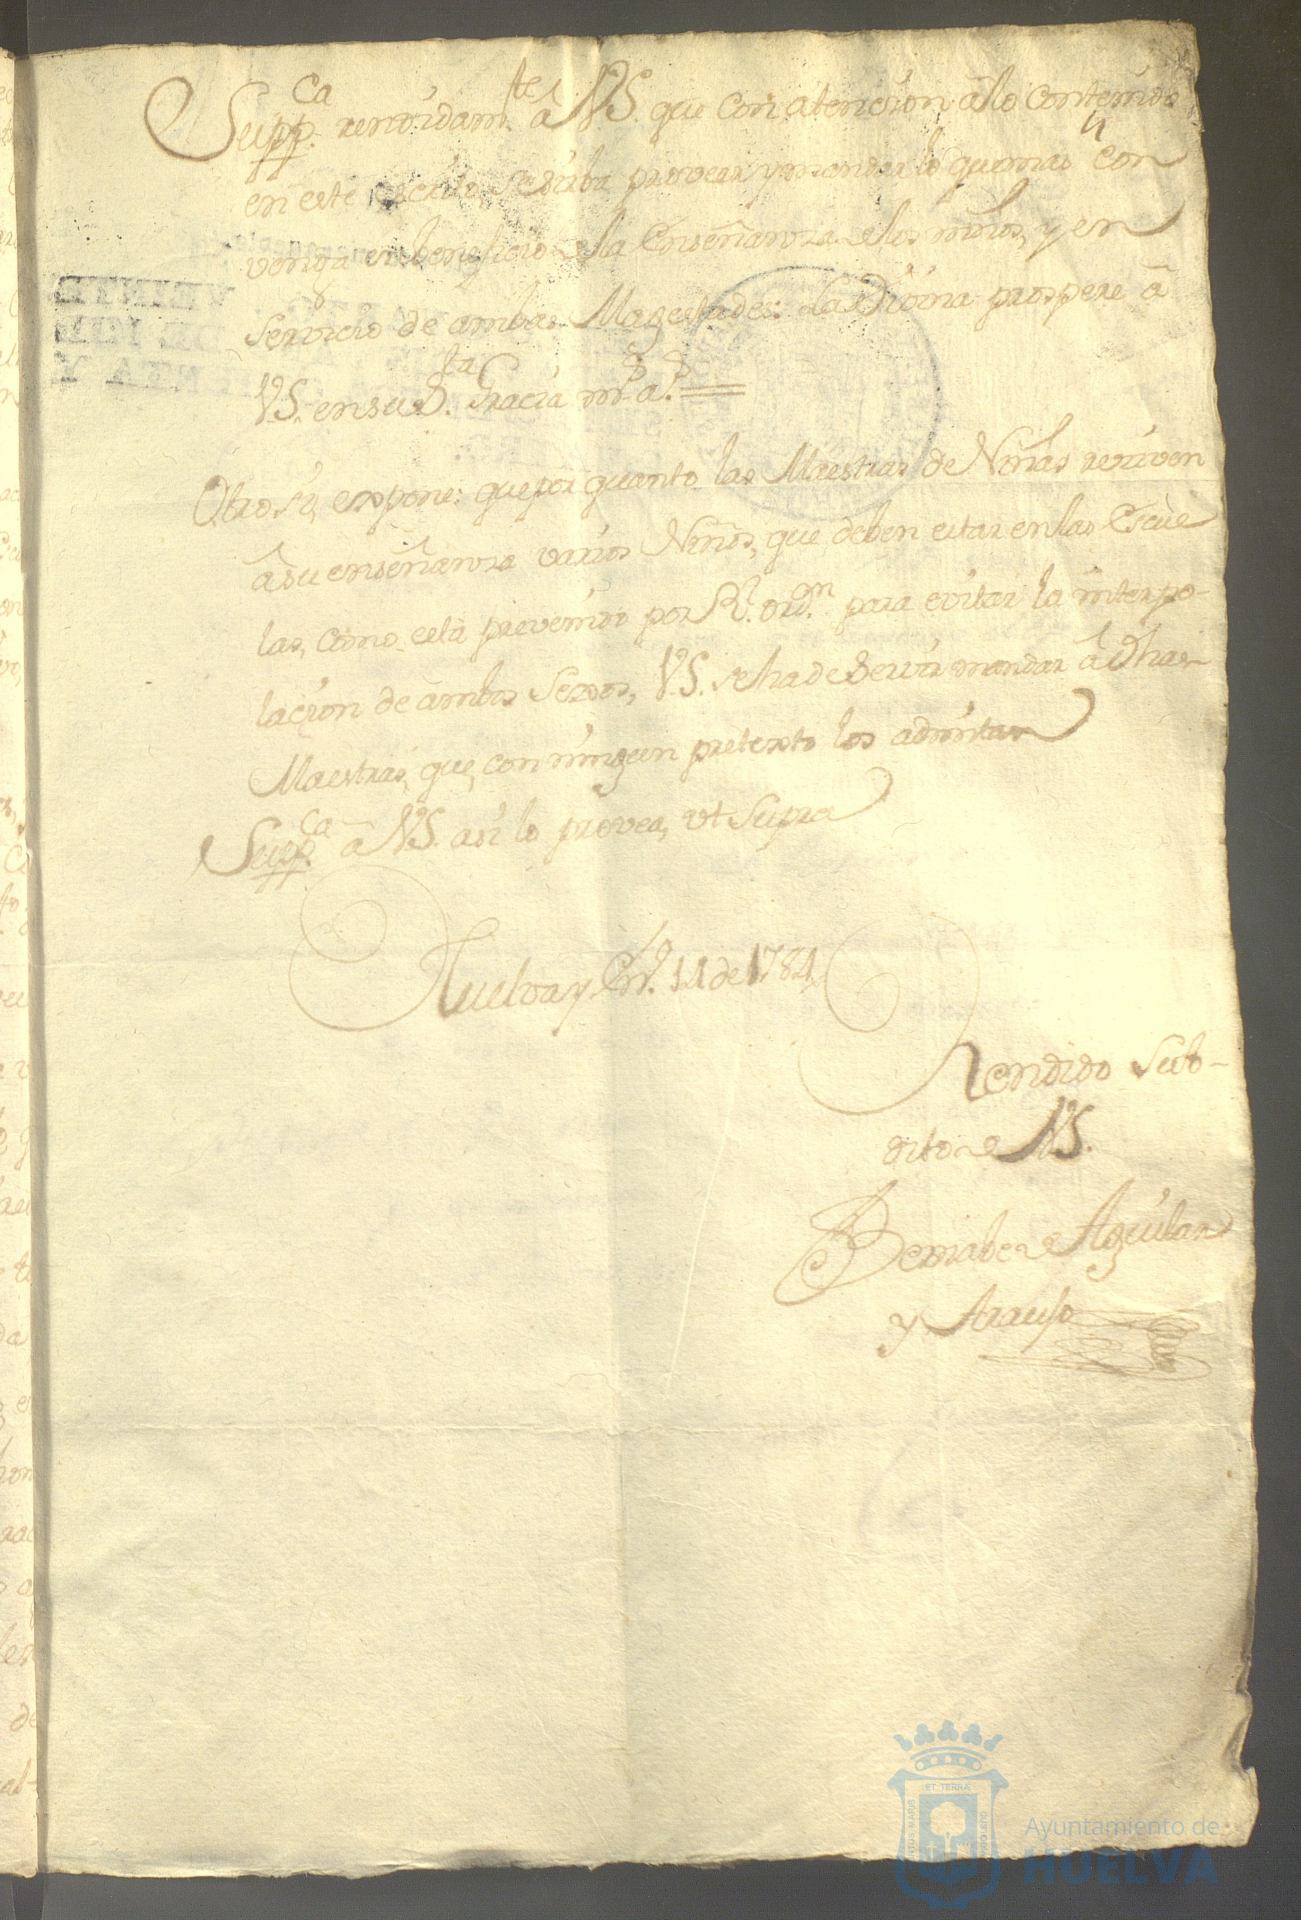 Supp.ca rendidam.te â V.S. que con atencion âlo contenido
en este escrito, se sirba proveer, y mandar lo que mas con
venga en beneficio de la Enseñanza de los niños, y en
servicio de ambas Magestades: La Divina prospere â
V.S. en su D.ta Gracia m.s a.s
Otro si, expone: que por quanto las Maestras de Niñas reciven
âsu enseñanza varios Niños, que deben estar en las Escue
las, como està prevenido por R.l ord.n para evitar la interpo-
lacion de ambos Sexos, V.S. se ha de servir mandar â dhas
Maestras, que, con ningun pretexto los admitan
Supp.ca â V.S. asi lo provea, ut Supra
Huelva y En.o 11 de 1784
Rendido Sub-
dito de V.S.
Bernabe de Aguilar
y Araujo
VEINTE
ET TERRA
Ayuntamiento de
HUELVA